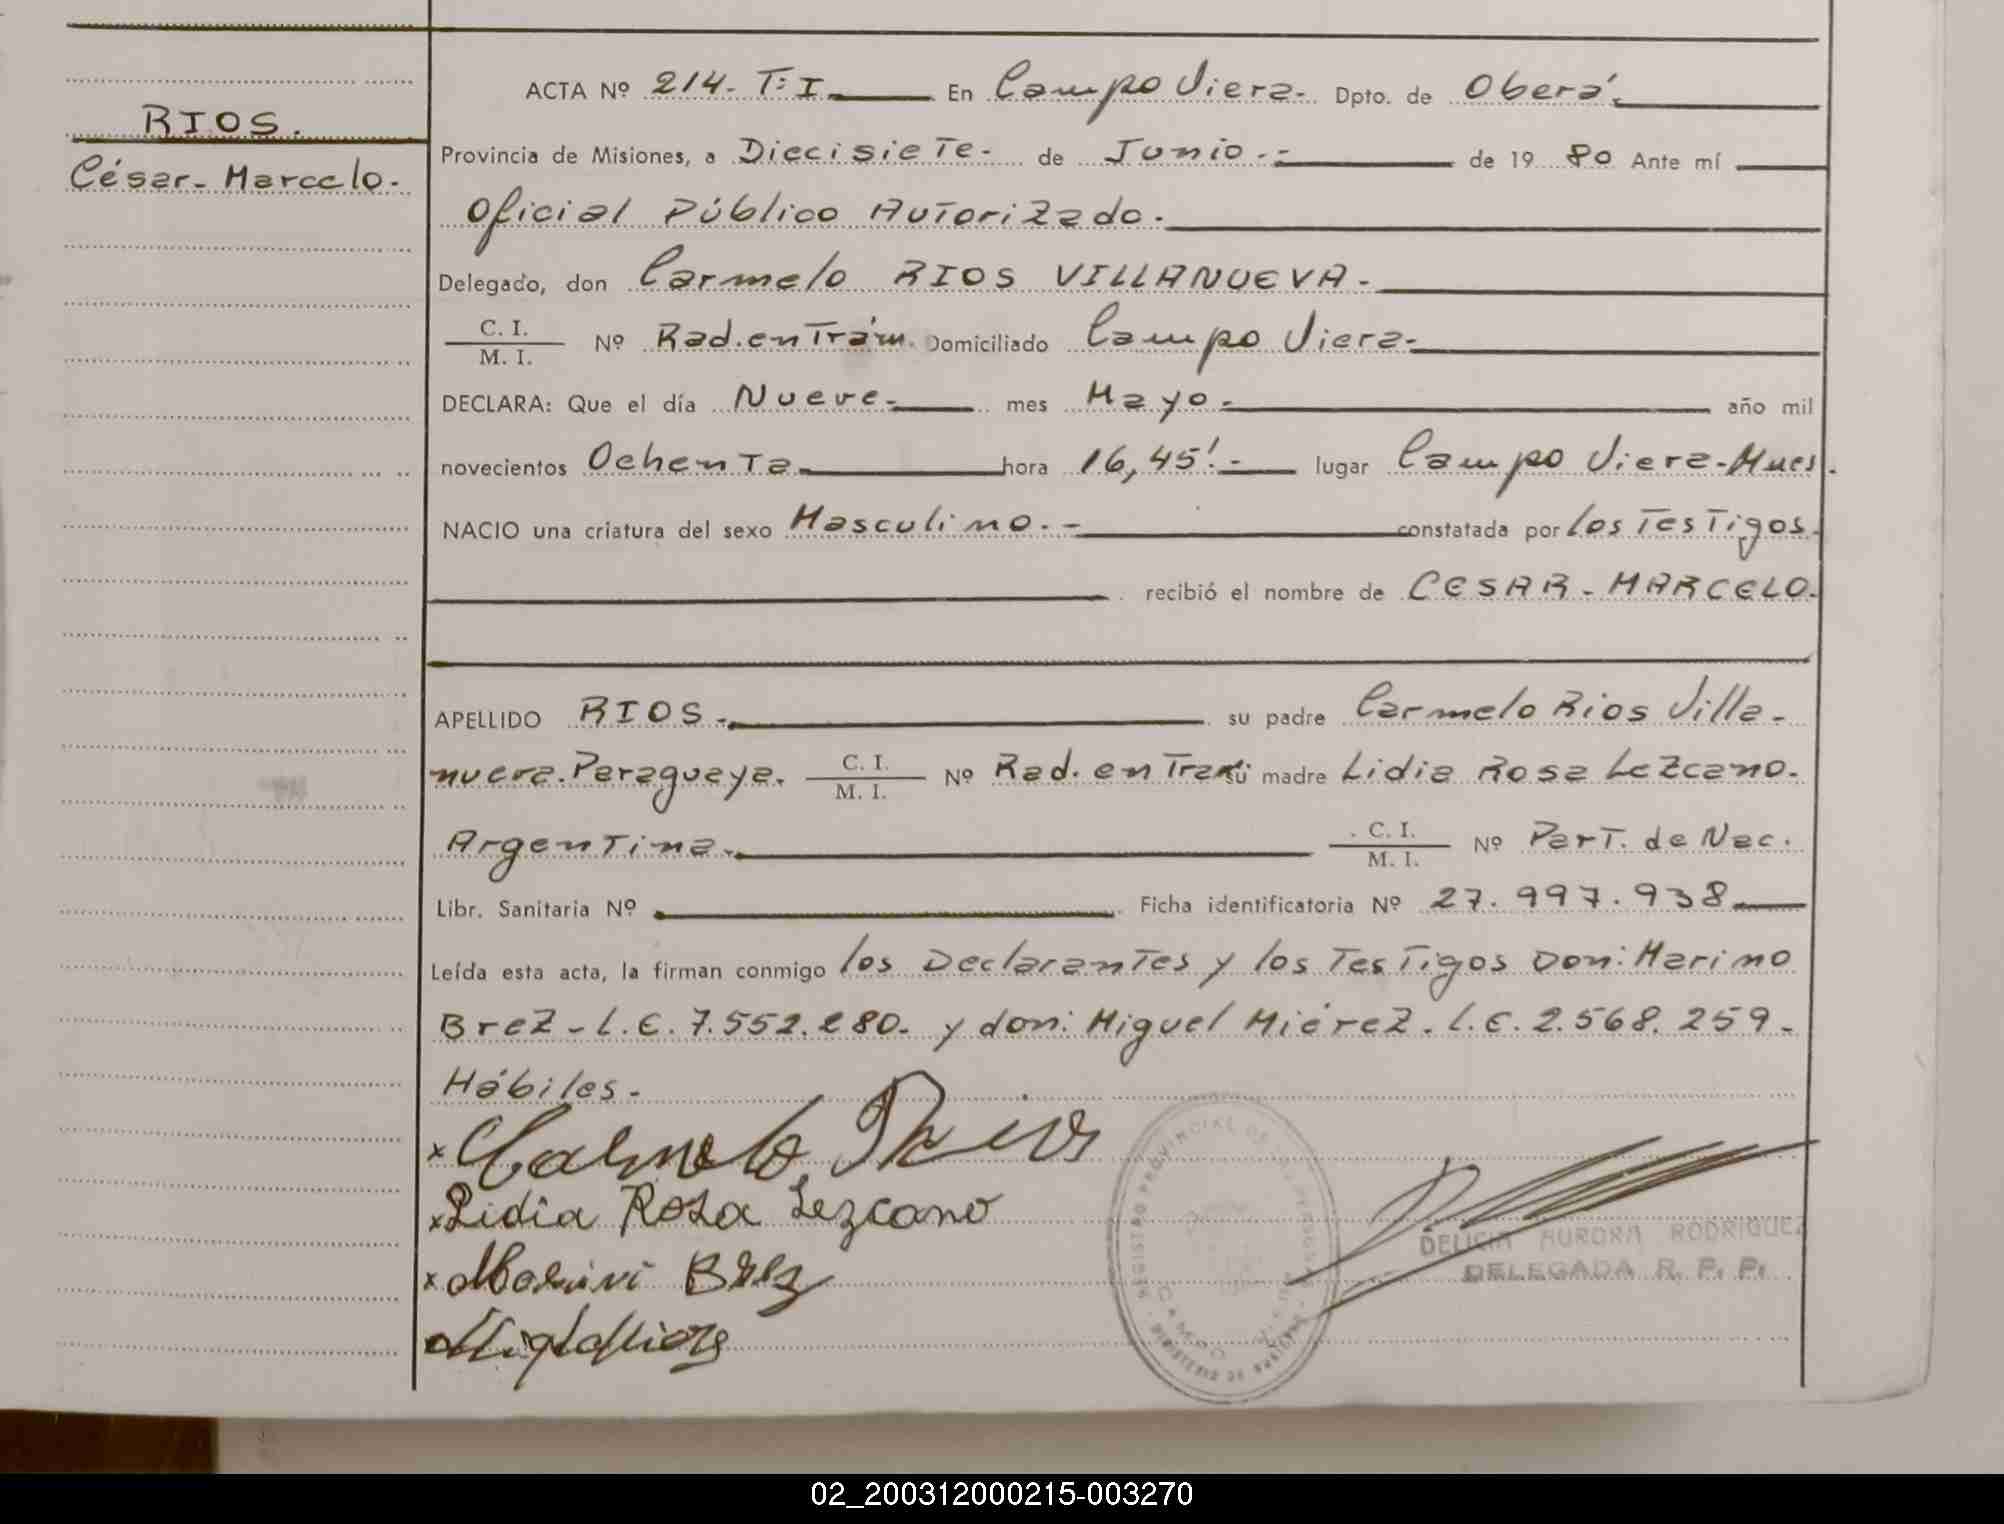 RIOS.
César-Marcelo.
ACTA Nº 214-T:I. En Campo Viera- Dpto. de Oberá.
Provincia de Misiones, a Diecisiete- de Junio.- de 1980 Ante mí
Oficial Público Autorizado.
Delegado, don Carmelo RIOS VILLANUEVA-
C. I.
M. I. Nº Rad.en Trám. Domiciliado Campo Viera-
DECLARA: Que el día Nueve- mes Mayo- año mil
novecientos Ochenta hora 16,45'.- lugar Campo Viera-Mnes.
NACIO una criatura del sexo Masculino.- constatada por los Testigos.
recibió el nombre de CESAR-MARCELO.
APELLIDO RIOS.- su padre Carmelo Rios Villa-
nueva. Paraguaya. C. I.
M. I. Nº Rad. en Tram. su madre Lidia Rosa Lezcano.
Argentina. C. I.
M. I. Nº Part. de Nac.
Libr. Sanitaria Nº Ficha identificatoria Nº 27.997.938
Leída esta acta, la firman conmigo los Declarantes y los Testigos Don: Marino
Brez-L.E.7.552.280- y don: Miguel Miérez-L.E.2.568.259-
Hábiles-
x Carmelo Rios
x Lidia Rosa Lezcano
x Marini Brez
REGISTRO PROVINCIAL DE LAS PERSONAS
CAMPO VIERA
DELICIA AURORA RODRIGUEZ
DELEGADA R. P. P.
02_200312000215-003270